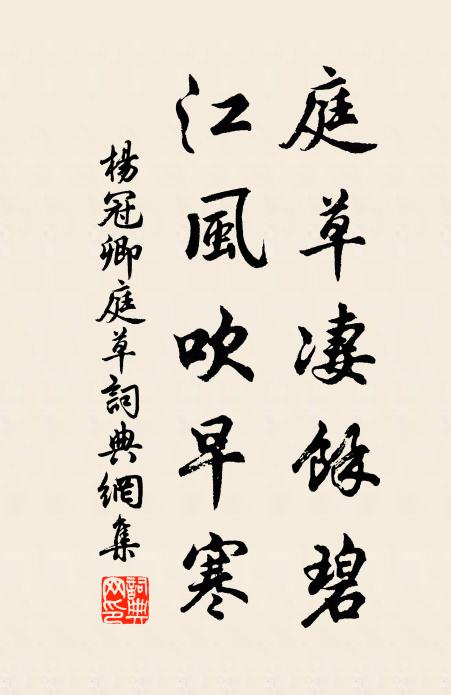 庭草淒餘碧
江風吹早寒
楊冠卿庭草詞典網集
詞典網印